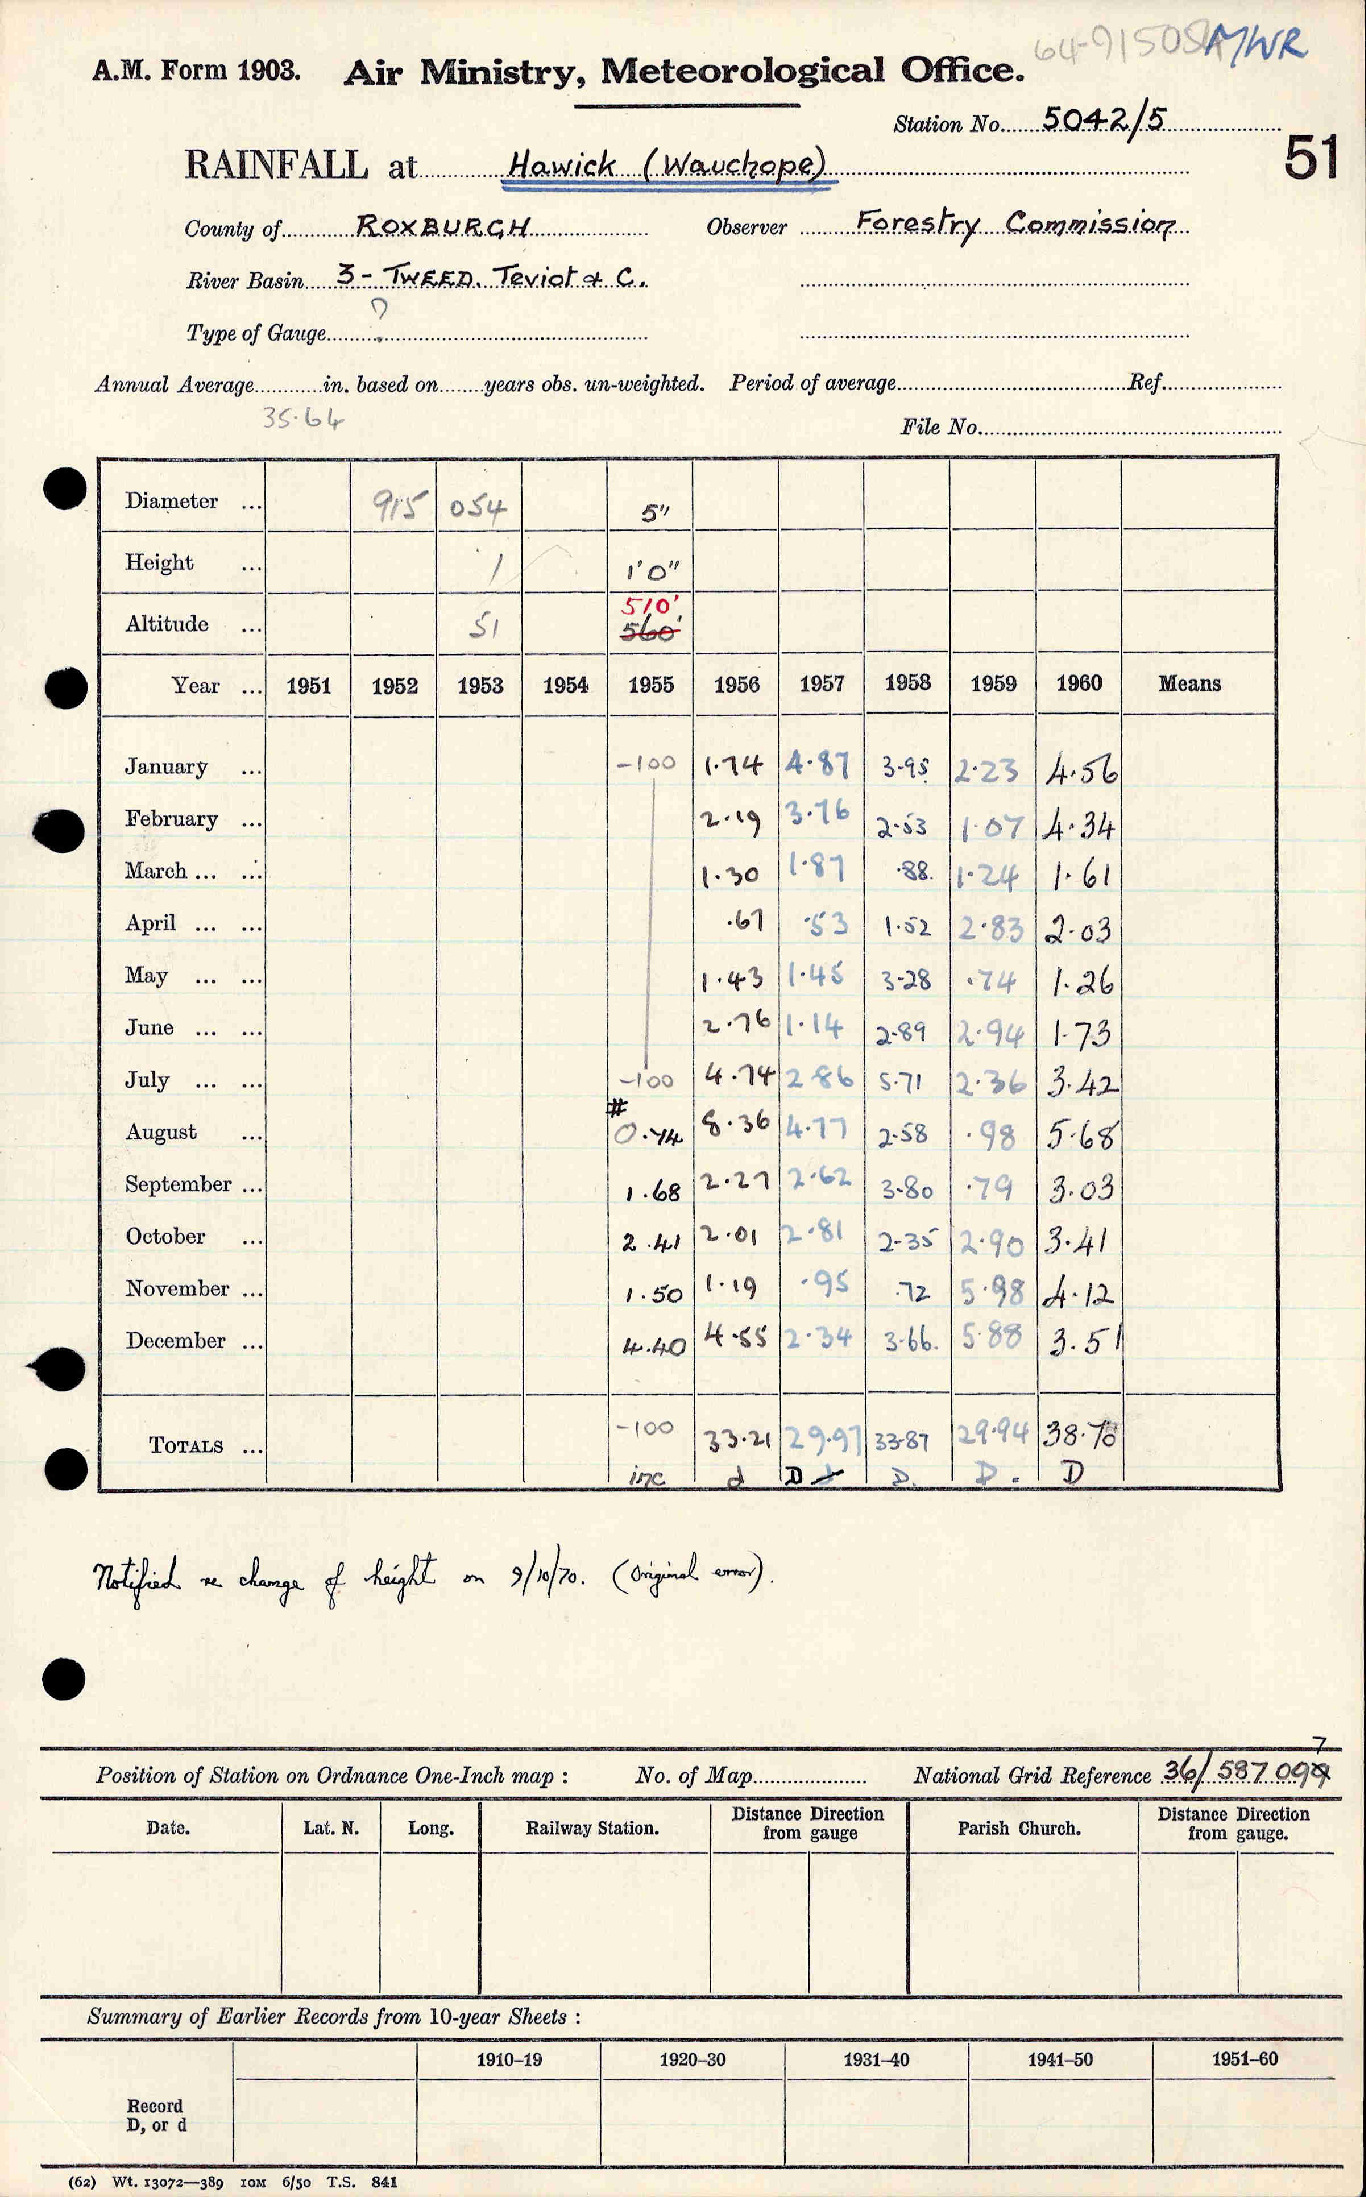 64-91505 MWR
A.M. Form 1903. Air Ministry, Meteorological Office.
Station No. 5042/5
51
RAINFALL at Hawick (Wauchope)
County of ROXBURGH Observer Forestry Commission
River Basin 3 - TWEED. Teviot & C.
Type of Gauge ?
Annual Average in. based on years obs. un-weighted. Period of average Ref.
35.64
File No.
Diameter ... 915 054 5"
Height ... 1 1'0"
510'
Altitude ... 51 560'
Year ... 1951 1952 1953 1954 1955 1956 1957 1958 1959 1960 Means
January ... -100 1.74 4.87 3.95 2.23 4.56
February ... 2.19 3.76 2.53 1.07 4.34
March ... ... 1.30 1.87 .88 1.24 1.61
April ... ... .67 .53 1.52 2.83 2.03
May ... ... 1.43 1.45 3.28 .74 1.26
June ... ... 2.76 1.14 2.89 2.94 1.73
July ... ... -100 4.74 2.86 5.71 2.36 3.42
#
August ... 0.74 8.36 4.77 2.58 .98 5.68
September ... 1.68 2.27 2.62 3.80 .79 3.03
October ... 2.41 2.01 2.81 2.35 2.90 3.41
November ... 1.50 1.19 .95 .72 5.98 4.12
December ... 4.40 4.55 2.34 3.66 5.88 3.51
TOTALS ... -100 33.21 29.97 33.87 29.94 38.70
inc d D D. D. D
Notified re change of height on 9/10/70. (Original error).
7
Position of Station on Ordnance One-Inch map : No. of Map National Grid Reference 36/587 099
Date. Lat. N. Long. Railway Station. Distance from gauge Direction Parish Church. Distance Direction from gauge.
Summary of Earlier Records from 10-year Sheets :
1910–19 1920–30 1931–40 1941–50 1951–60
Record
D, or d
(62) Wt. 13072—389 10M 6/50 T.S. 841